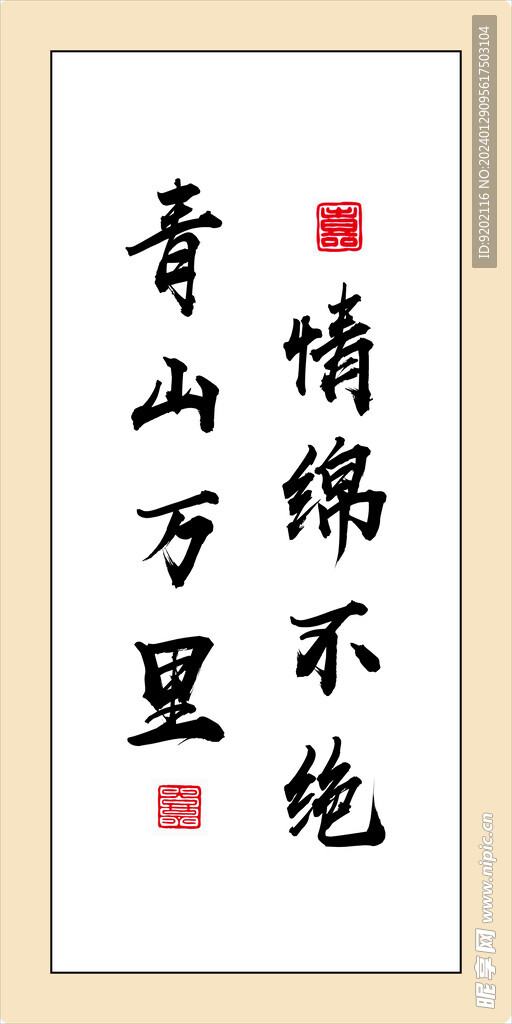 青山万里
情绵不绝
ID:9202116 NO:20240129095617503104
昵享网 www.nipic.cn